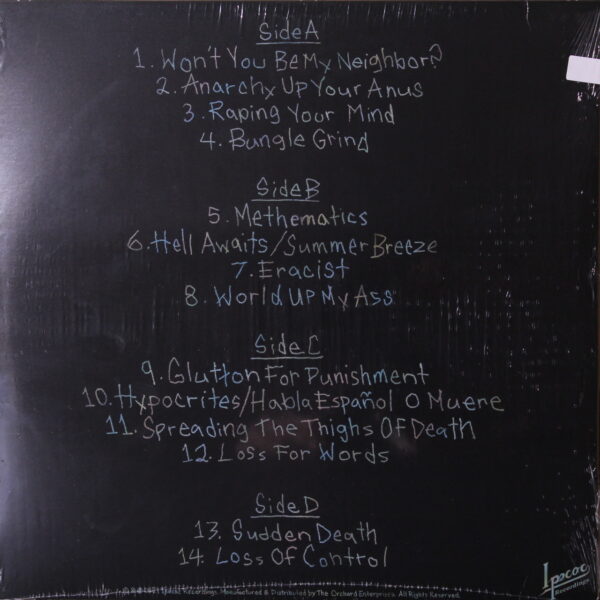 Side A
1. Won't You Be My Neighbor?
2. Anarchy Up Your Anus
3. Raping Your Mind
4. Bungle Grind
Side B
5. Methematics
6. Hell Awaits/Summer Breeze
7. Eracist
8. World Up My Ass
Side C
9. Glutton For Punishment
10. Hypocrites/Habla Español O Muere
11. Spreading The Thighs Of Death
12. Loss For Words
Side D
13. Sudden Death
14. Loss Of Control
Ipecac
Recordings
Ipecac Recordings. Manufactured & Distributed by The Orchard Enterprises. All Rights Reserved.